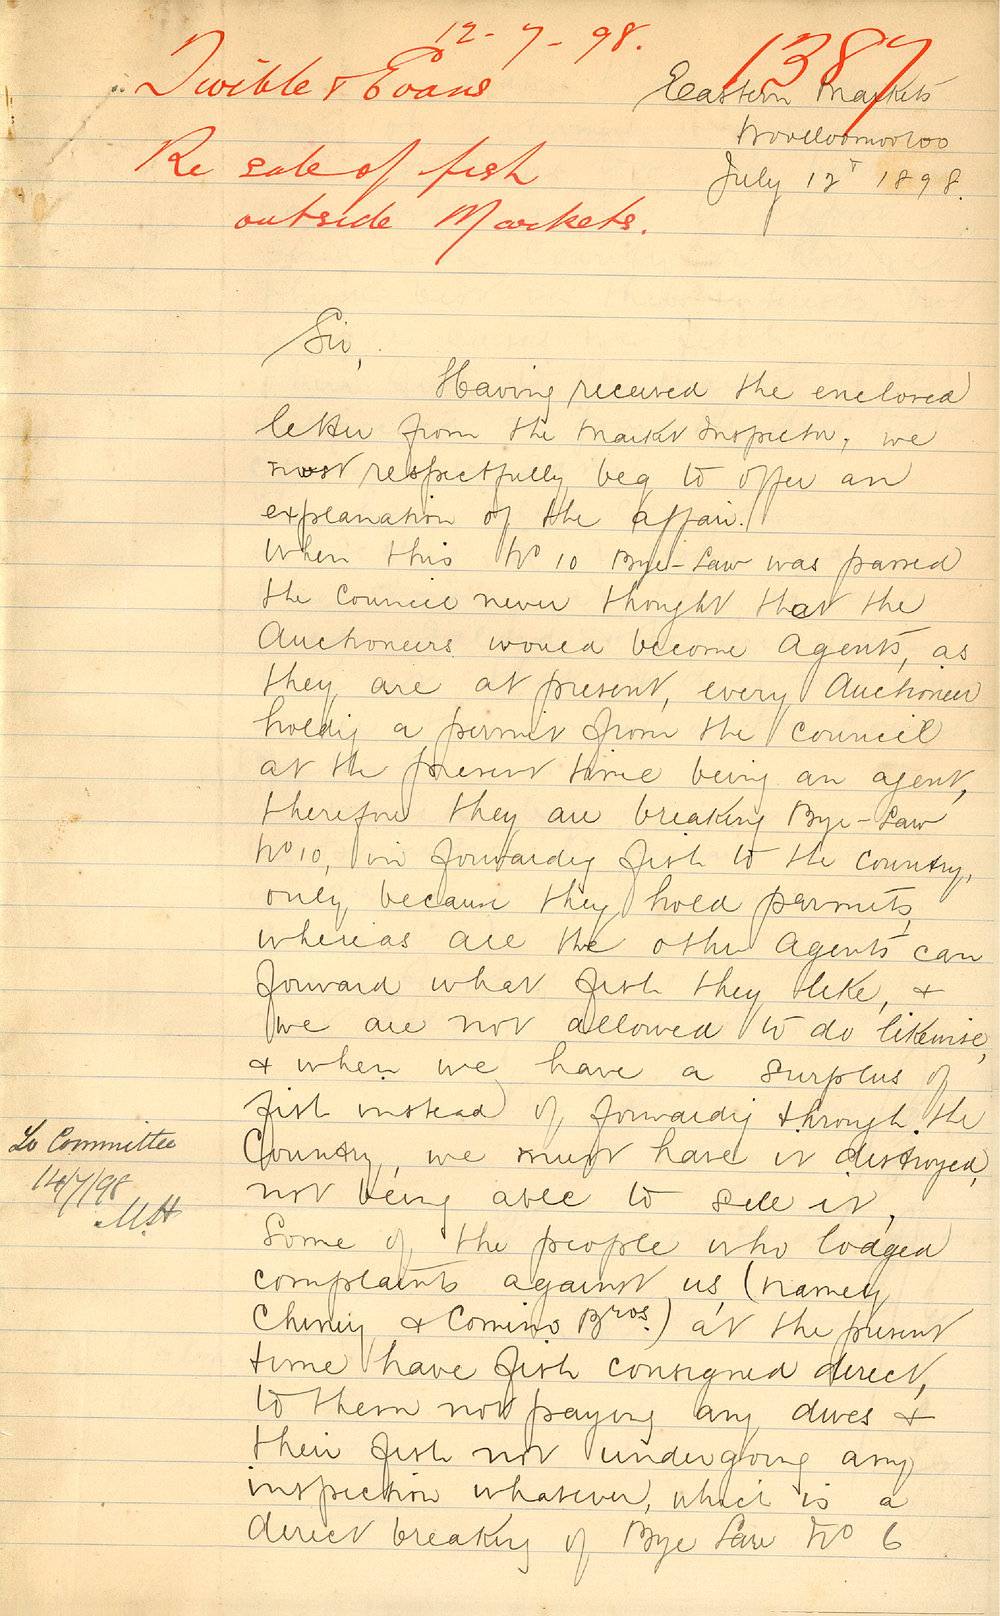 12-7-98.
1387
Twible & Evans
Re sale of fish
outside Markets.
Eastern Markets
Woolloomooloo
July 12T 1898.
Sir,
Having received the enclosed
letter from the Market Inspector, we
most respectfully beg to offer an
explanation of the affair.
When this No 10 Bye-Law was passed
the Council never thought that the
Auctioneers would become Agents, as
they are at present, every Auctioneer
holdig a permit from the Council
at the present time being an agent,
therefore they are breaking Bye-Law
No 10, in forwardig fish to the Country,
only because they hold permits,
whereas all the other Agents can
forward what fish they like, &
we are not allowed to do likewise,
& when we have a surplus of
fish instead of forwardig through the
Country, we must have it destroyed,
not being able to sell it,
Some of the people who lodged
complaints against us, (namely
& Comino Bros.) at the present
time have fish consigned direct,
to them not paying any dues &
their fish not undergoing any
inspection whatever, which is a
direct breaking of Bye Law No 6
To Committee
14/7/98